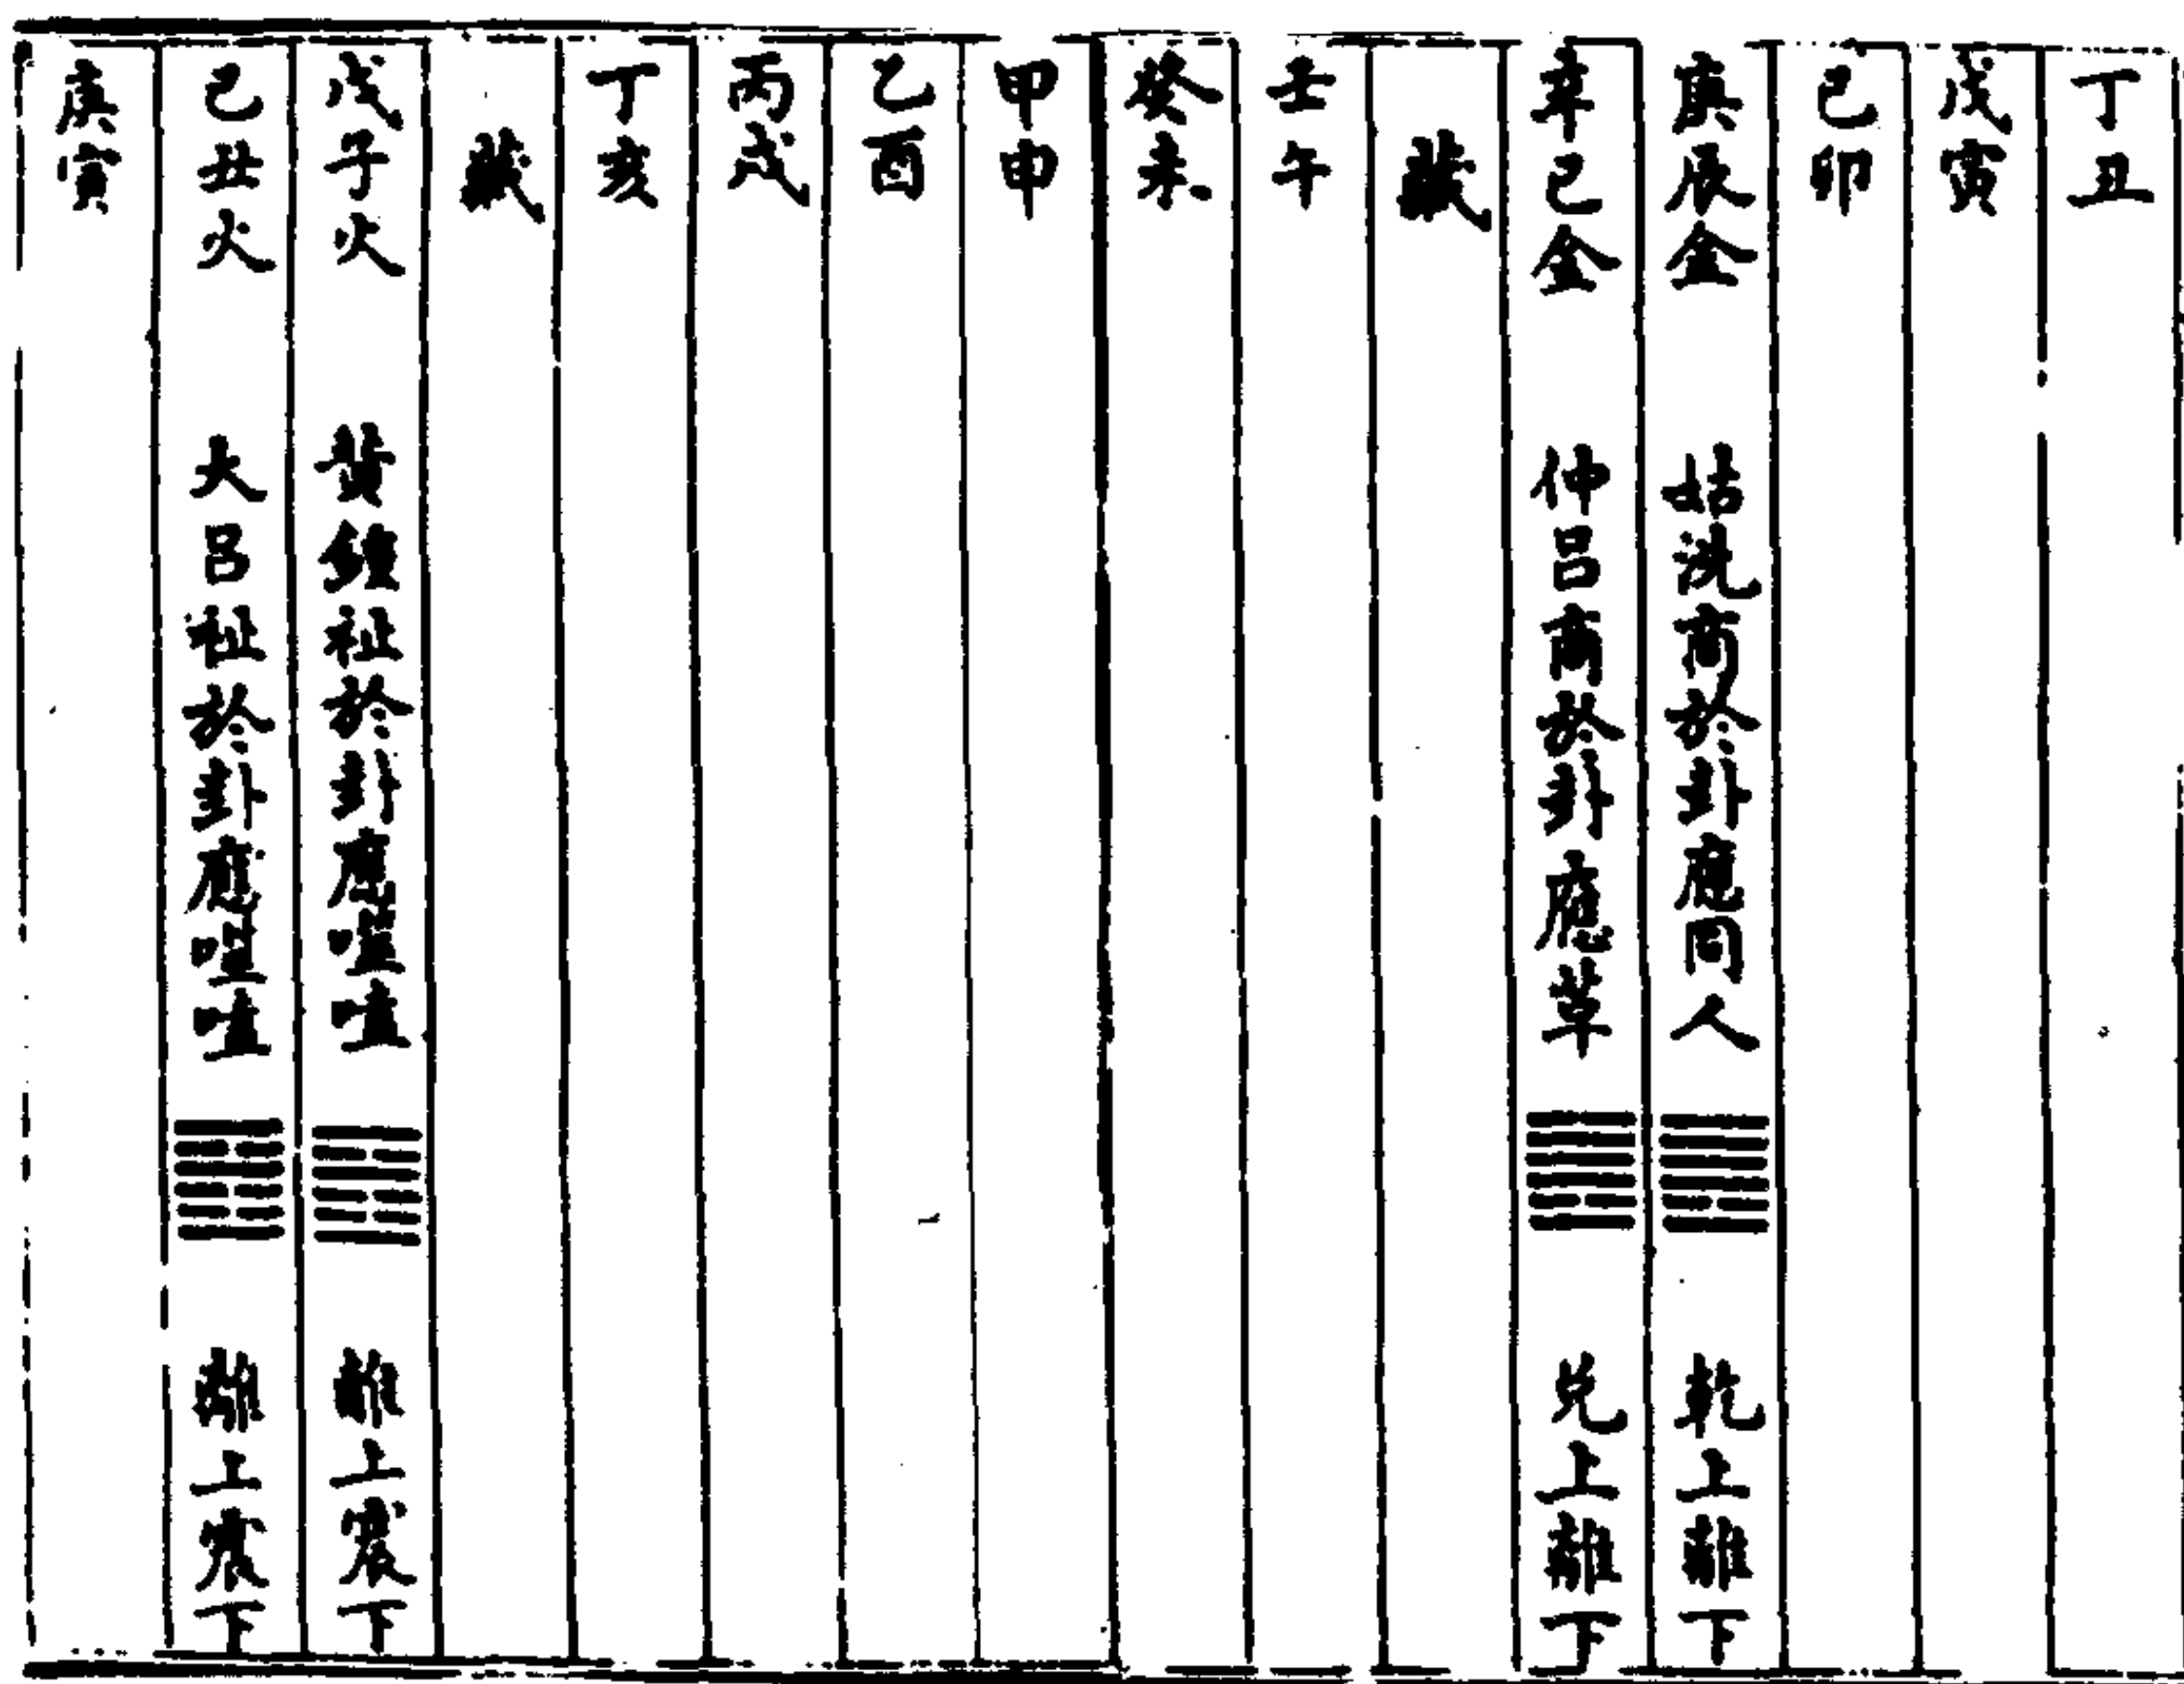 丁丑
戊寅
己卯
庚辰金 姑洗商於卦應同人 ䷌ 乾上離下
辛巳金 仲呂商於卦應革 兌上離下
歲
壬午
癸未
甲申
乙酉
丙戌
丁亥
歲
戊子火 黃鍾祉於卦應噬嗑 ䷔ 離上震下
己丑火 大呂祉於卦應噬嗑 ䷔ 離上震下
庚寅